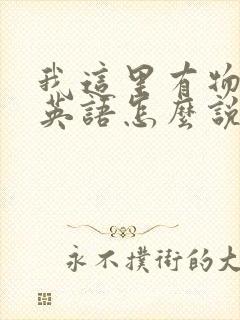 我這里有物
英語怎麼說
永不撲街的大